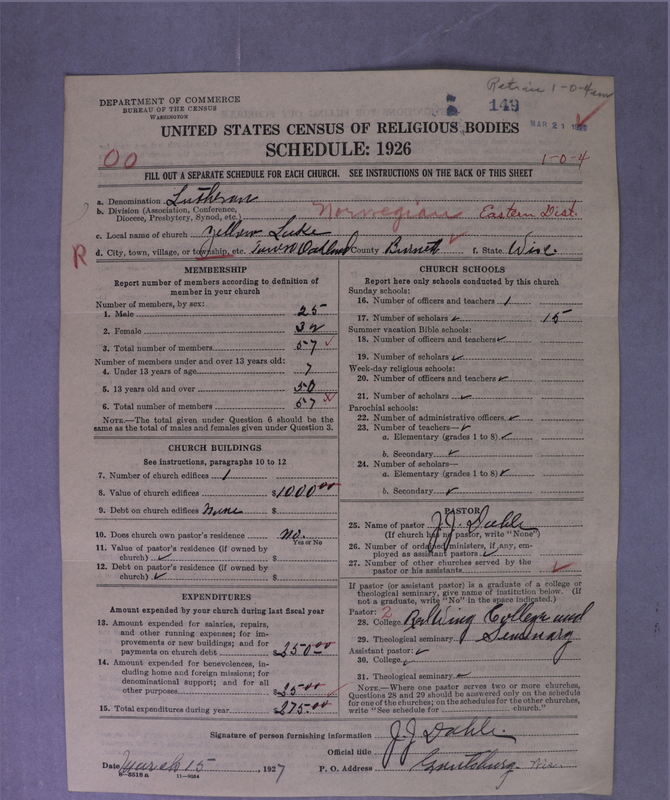 Retain 1-0-4
DEPARTMENT OF COMMERCE
BUREAU OF THE CENSUS
WASHINGTON
149
MAR 21
UNITED STATES CENSUS OF RELIGIOUS BODIES
SCHEDULE: 1926
00
1-0-4
FILL OUT A SEPARATE SCHEDULE FOR EACH CHURCH. SEE INSTRUCTIONS ON THE BACK OF THIS SHEET
a. Denomination Lutheran
b. Division (Association, Conference, Diocese, Presbytery, Synod, etc.) Norwegian Eastern Dist.
c. Local name of church Yellow Lake
R
d. City, town, village, or township, etc. Town Oakland County Burnett f. State Wisc.
MEMBERSHIP
Report number of members according to definition of member in your church
Number of members, by sex:
1. Male 25
2. Female 32
3. Total number of members 57
Number of members under and over 13 years old:
4. Under 13 years of age 7
5. 13 years old and over 50
6. Total number of members 57
NOTE.—The total given under Question 6 should be the same as the total of males and females given under Question 3.
CHURCH BUILDINGS
See instructions, paragraphs 10 to 12
7. Number of church edifices 1
8. Value of church edifices $1000.00
9. Debt on church edifices None $
10. Does church own pastor's residence no.
Yes or No
11. Value of pastor's residence (if owned by church) ✓ $
12. Debt on pastor's residence (if owned by church) ✓ $
EXPENDITURES
Amount expended by your church during last fiscal year
13. Amount expended for salaries, repairs, and other running expenses; for improvements or new buildings; and for payments on church debt $250.00
14. Amount expended for benevolences, including home and foreign missions; for denominational support; and for all other purposes $25.00
15. Total expenditures during year $275.00
CHURCH SCHOOLS
Report here only schools conducted by this church
Sunday schools:
16. Number of officers and teachers 1
17. Number of scholars ✓ 15
Summer vacation Bible schools:
18. Number of officers and teachers ✓
19. Number of scholars ✓
Week-day religious schools:
20. Number of officers and teachers ✓
21. Number of scholars ✓
Parochial schools:
22. Number of administrative officers ✓
23. Number of teachers— ✓
a. Elementary (grades 1 to 8) ✓
b. Secondary ✓
24. Number of scholars—
a. Elementary (grades 1 to 8) ✓
b. Secondary ✓
PASTOR
25. Name of pastor J. J. Dahle
(If church has no pastor, write "None")
26. Number of ordained ministers, if any, employed as assistant pastors ✓
27. Number of other churches served by the pastor or his assistants ✓
If pastor (or assistant pastor) is a graduate of a college or theological seminary, give name of institution below. (If not a graduate, write "No" in the space indicated.)
Pastor: 2
28. College College and
29. Theological seminary Seminary
Assistant pastor: ✓
30. College ✓
31. Theological seminary ✓
NOTE.—Where one pastor serves two or more churches, Questions 28 and 29 should be answered only on the schedule for one of the churches; on the schedules for the other churches, write "See schedule for ______ church."
Signature of person furnishing information J. J. Dahle.
Official title
Date March 15, 1927 P. O. Address Grantsburg Wisc.
8—8518a 11—9084